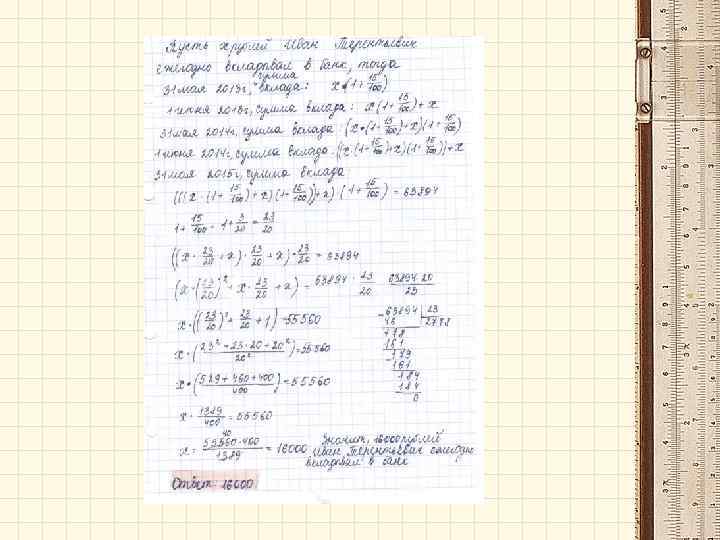 Пусть x рублей Иван Терентьевич
ежегодно вкладывал в банк, тогда
31 мая 2013г, сумма вклада: x·(1+15/100)
1 июня 2013г, сумма вклада: x(1+15/100)+x
31 мая 2014г, сумма вклада (x·(1+15/100)+x)(1+15/100)
1 июня 2014г, сумма вклада ((x·(1+15/100)+x)(1+15/100))+x
31 мая 2015г, сумма вклада
(((x·(1+15/100)+x)(1+15/100))+x)·(1+15/100) = 63894
1+15/100 = 1+3/20 = 23/20
((x·23/20+x)·23/20+x)·23/20 = 63894
(x·(23/20)²+x·23/20+x) = 63894 : 23/20 63894·20/23
x·((23/20)²+23/20+1) = 55560
x·(23²+23·20+20²/20²) = 55560
x·(529+460+400/400) = 55560
x·1389/400 = 55560
x = 55560·400/1389 = 16000
40
63894 23
46 2778
178
161
179
161
184
184
0
Значит, 16000 рублей
Иван Терентьевич ежегодно
вкладывал в банк
Ответ: 16000